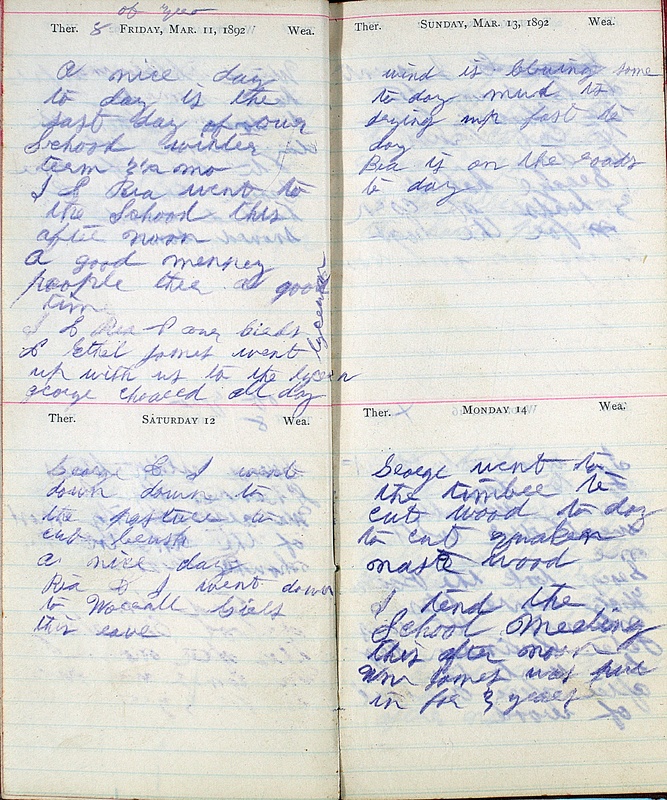 of
Ther. 8 FRIDAY, MAR. 11, 1892 Wea.
A nice day
to day is the
last day of our
School winter
term 3 mo
I & Ria went to
the School this
after noon
A good menney
people ther a good
time
I & Ria & our bieds
& Ethel James went
up with us to the lyceum
lyceum
George choaced all day
Ther. SATURDAY 12 Wea.
George & I went
down downe to
the pasture to
cut brush
a nice day
Ria & I went down
to biels
this eave
Ther. SUNDAY, MAR. 13, 1892 Wea.
wind is blowing some
to day mud is
drying up fast to
day
Ria is on the roads
to day
Ther. MONDAY 14 Wea.
George went to
the timbee to
cut wood to day
to cut
wood
I tend the
School Meeting
this after noon
Wm James was put
in for 3 years